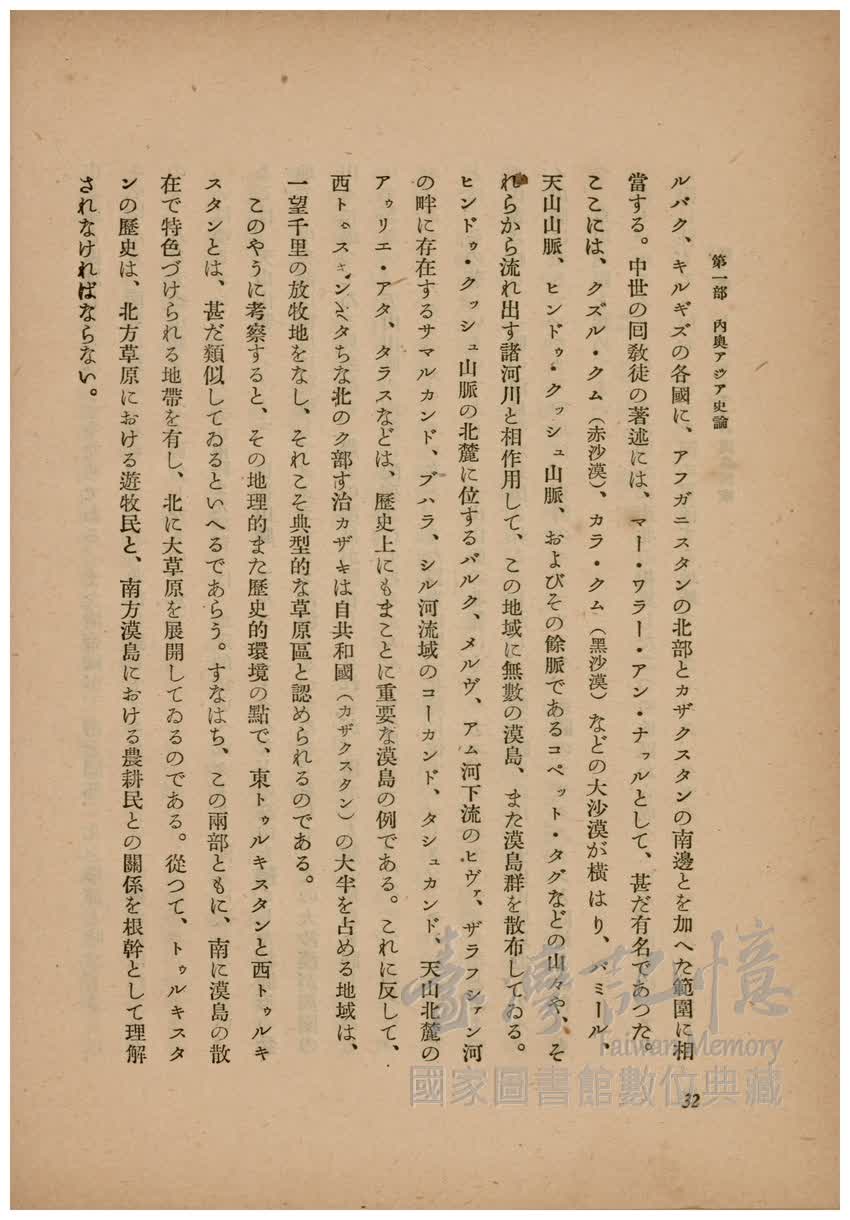 第一部 內奧アジア史論
ルバク、キルギズの各國に、アフガニスタンの北部とカザクスタンの南邊とを加へた範圍に相
當する。中世の回敎徒の著述には、マー・ワラー・アン・ナッルとして、甚だ有名であつた。
ここには、クズル・クム（赤沙漠）、カラ・クム（黑沙漠）などの大沙漠が橫はり、パミール、
天山山脈、ヒンドゥ・クッシュ山脈、およびその餘脈であるコペット・タグなどの山々や、そ
れらから流れ出す諸河川と相作用して、この地域に無數の漠島、また漠島群を散布してゐる。
ヒンドゥ・クッシュ山脈の北麓に位するバルク、メルヴ、アム河下流のヒヴァ、ザラフシァン河
の畔に存在するサマルカンド、ブハラ、シル河流域のコーカンド、タシュカンド、天山北麓の
アゥリエ・アタ、タラスなどは、歷史上にもまことに重要な漠島の例である。これに反して、
西トゥスキンミタちな北のク部す治カザキは自共和國（カザクスタン）の大半を占める地域は、
一望千里の放牧地をなし、それこそ典型的な草原區と認められるのである。
このやうに考察すると、その地理的また歷史的環境の點で、東トゥルキスタンと西トゥルキ
スタンとは、甚だ類似してゐるといへるであらう。すなはち、この兩部ともに、南に漠島の散
在で特色づけられる地帶を有し、北に大草原を展開してゐるのである。從つて、トゥルキスタ
ンの歷史は、北方草原における遊牧民と、南方漠島における農耕民との關係を根幹として理解
されなければならない。
32
臺灣記憶
Taiwan Memory
國家圖書館數位典藏